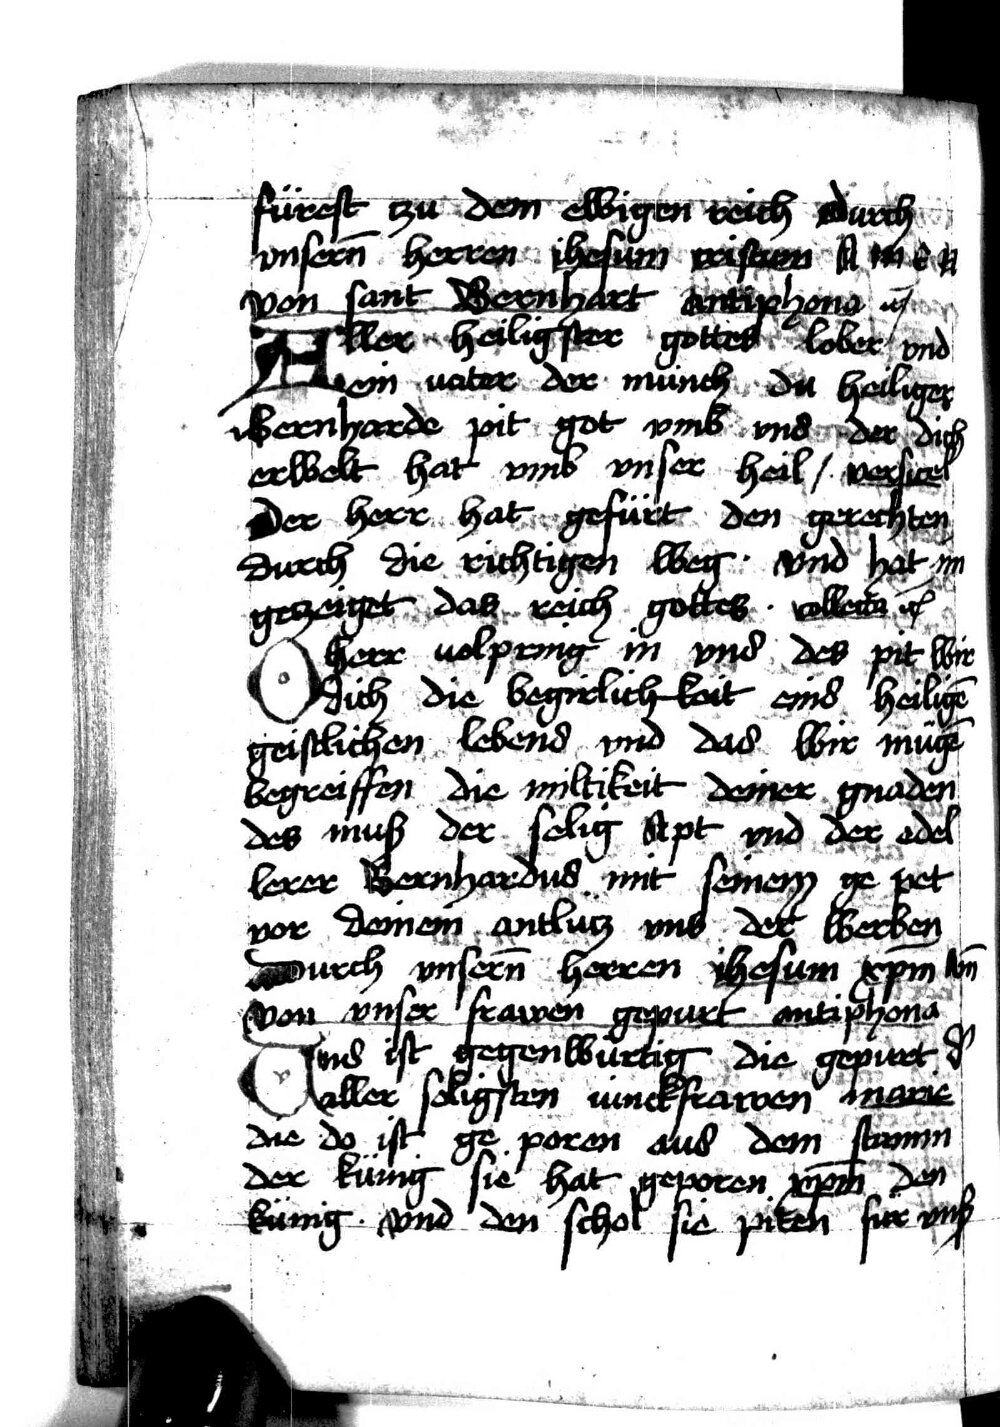 fürest tzu dem ewigen reich durch
vnsern̄ herren ihesum cristum Amen
von sant Bernhart antiphona
Aller heiligster gottes lober vnd
ein vater der münch du heiliger
Bernharde pit got vmb vns der dich
erwelt hat vmb vnser heil / versicel
Der herr hat gefürt den gerechten
durch die richtigen weg · vnd hat im
getzeiget das reich gottes · collecta
O herr volpring in vns des pit wir
dich die begirlichkeit eins heiligē
geistlichen lebens vnd das wir mügē
begreiffen die miltikeit deiner gnaden
des muß der selig Apt vnd der edel
lerer Bernhardus mit seinem ge pet
vor deinem antlutz vns der werben
Durch vnsern̄ herren ihesum xp̄m Am̄
Von vnser frawen gepurt antiphona
Vns ist gegenwürtig die gepurt d̄
aller seligsten iunckfrawen marie
die do ist ge poren aus dem stamm
der künig sie hat geporen xp̄m den
künig · vnd den schol sie piten für vnß